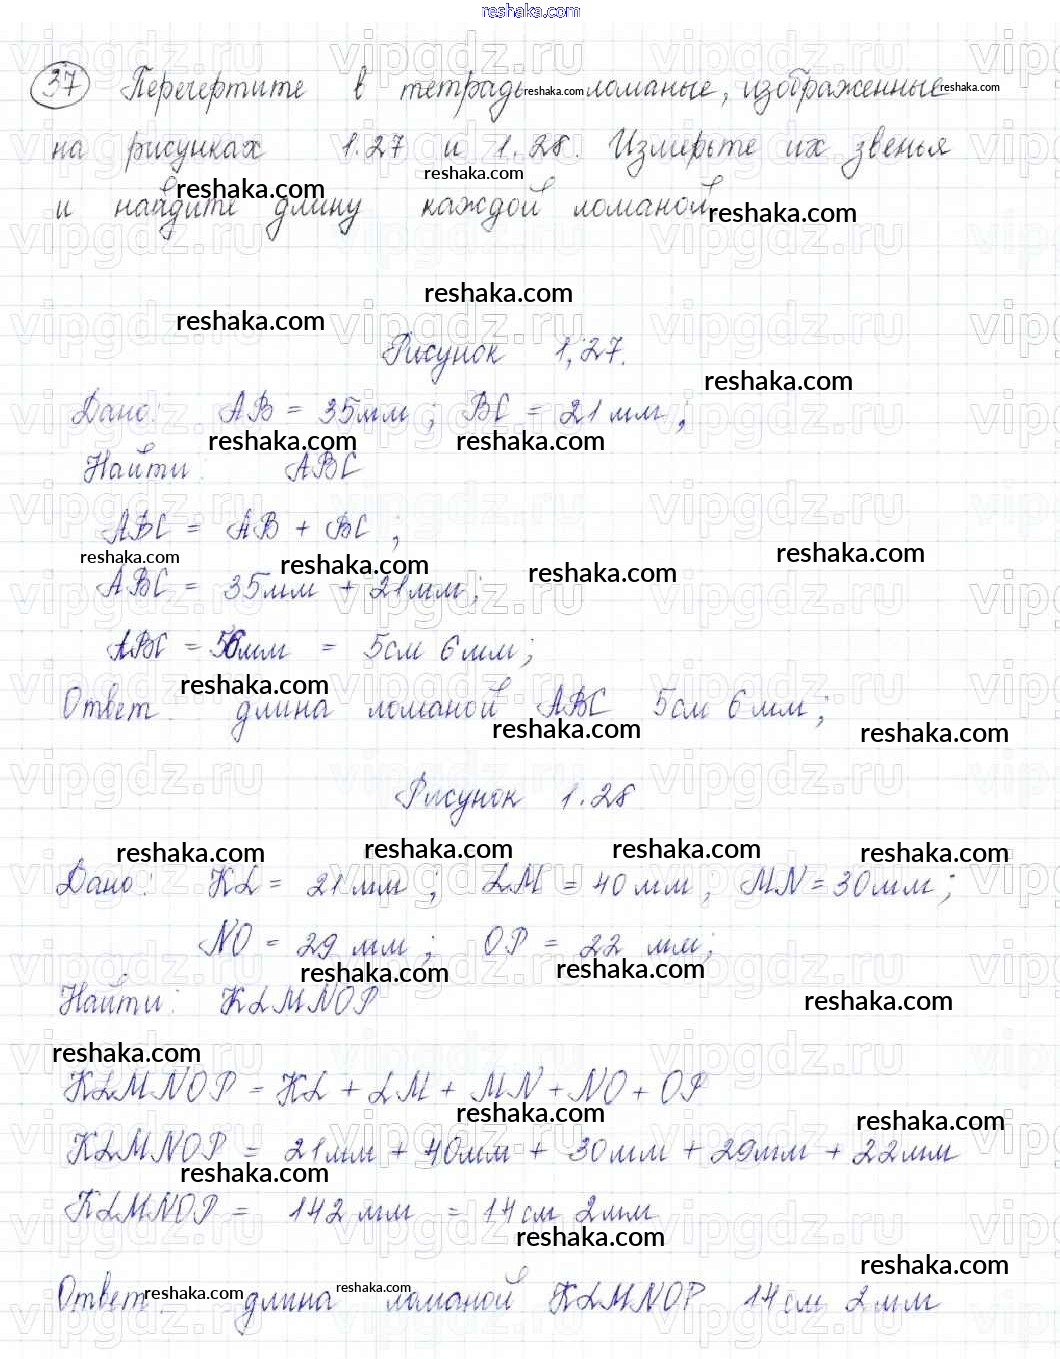 reshaka.com
37 Перечертите в тетрадь ломаные, изображенные
на рисунках 1.27 и 1.28. Измерьте их звенья
и найдите длину каждой ломаной
Рисунок 1,27.
Дано: AB = 35мм ; BC = 21 мм ;
Найти: ABC
ABC = AB + BC ;
ABC = 35мм + 21мм ;
ABC = 56мм = 5см 6мм ;
Ответ. длина ломаной ABC 5см 6мм ;
Рисунок 1.28
Дано: KL = 21 мм ; LM = 40 мм ; MN = 30мм ;
NO = 29 мм ; OP = 22 мм ;
Найти: KLMNOP
KLMNOP = KL + LM + MN + NO + OP
KLMNOP = 21мм + 40мм + 30мм + 29мм + 22мм
KLMNOP = 142 мм = 14см 2мм
Ответ: длина ломаной KLMNOP 14см 2мм